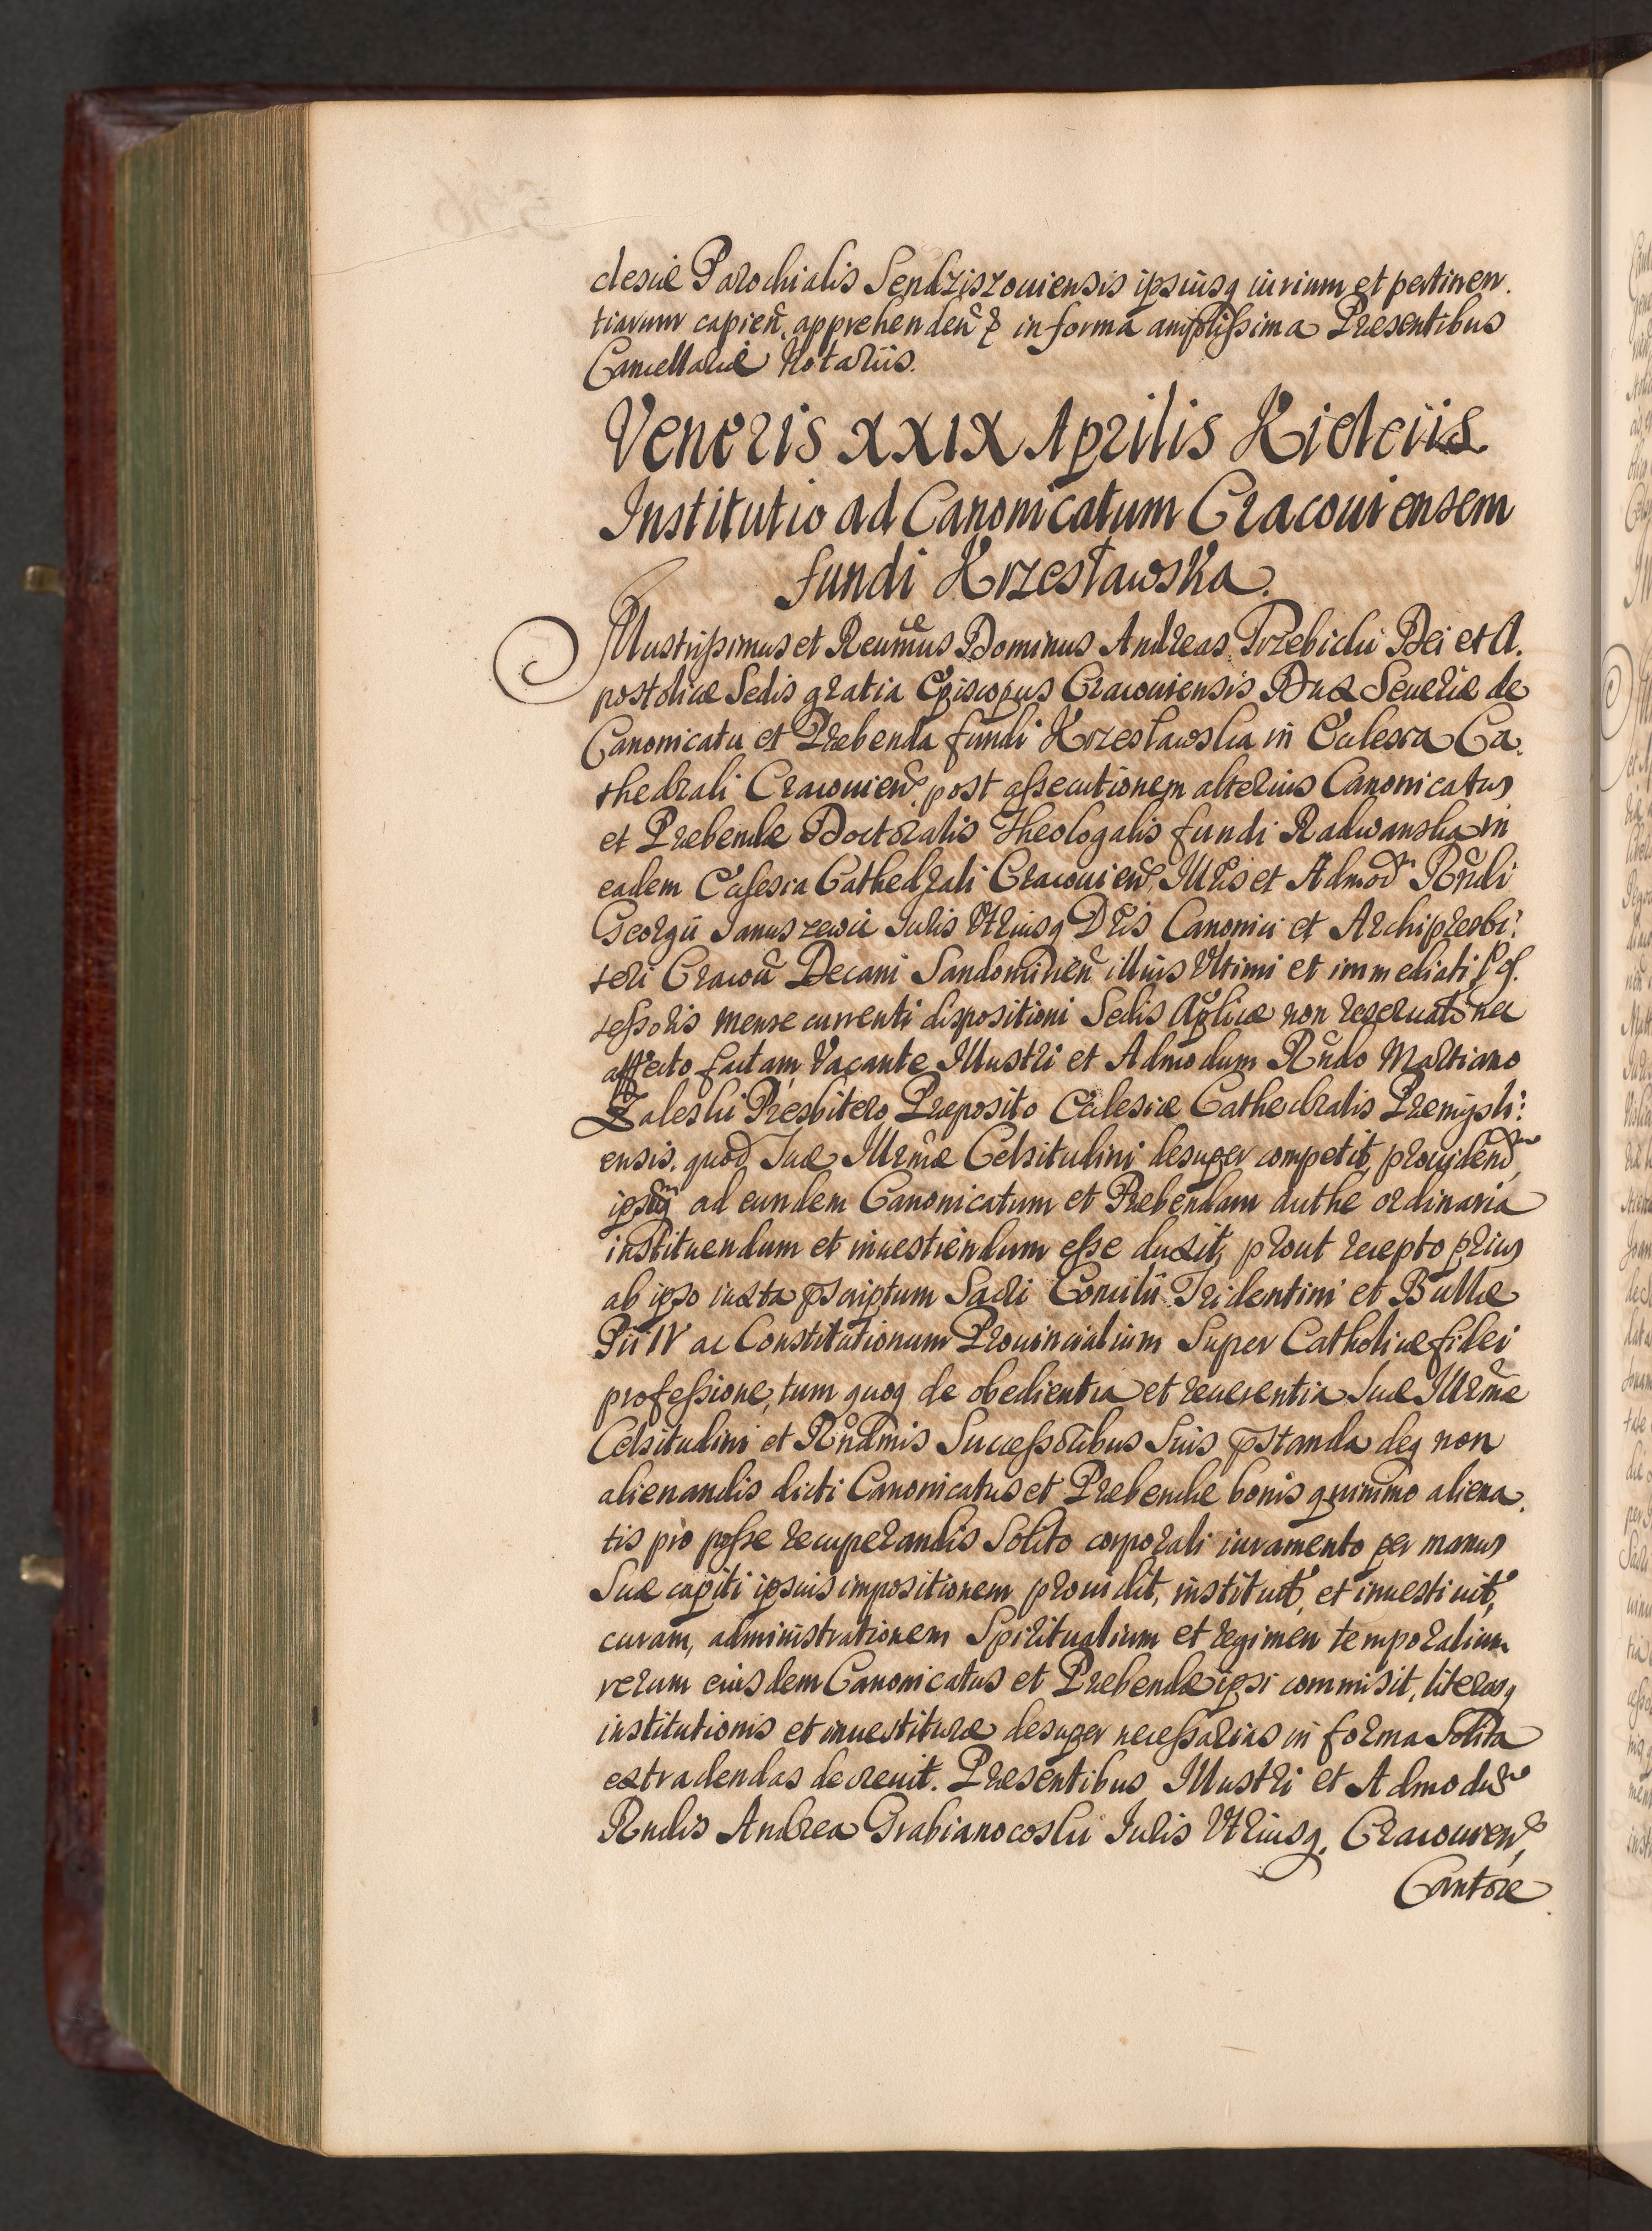 clesiæ Parochialis Sendziszouiensis ipsiusq iurium et pertinen.
tiarum capien. apprehenden & in forma amplissima Præsentibus
Cancellariæ Notariis.
Veneris XXIX Aprilis Kielciis
Institutio ad Canonicatum Cracouiensem
fundi Krzesławska.
Illustrissimus et Reumus Dominus Andreas Trzebicki Dei et A.
postolicæ Sedis gratia Episcopus Cracouiensis Dux Seueriæ de
Canonicatu et Præbenda fundi Krzesławska in Ecclesia Ca.
thedrali Cracouien. post assecutionem alterius Canonicatus
et Præbendæ Doctoralis Theologalis fundi Radwanska in
eadem Ecclesia Cathedrali Cracouien. Illris et Admod Rndi
Georgii Januszewic Juris Vtriusq Dris Canonici et Archipresbi:
teri Cracou Decani Sandomirien illius Vltimi et immediati Pos.
sessoris mense currenti dispositioni Sedis Aplicæ non reseruato nec
affecto factam Vacante Illustri et Admodum Rndo Martiano
Zaleski Presbitero Præposito Ecclesiæ Cathedralis Præmisli:
ensis. quod Suæ Illrmæ Celsitudini desuper competit, prouidend
ipsūq ad eundem Canonicatum et Præbendam authe ordinaria
instituendum et inuestiendum esse duxit, prout recepto prius
ab ipso iuxta pscriptum Sacri Concilii Tridentini et Bullæ
Pii IV ac Constitutionum Prouincialium Super Catholicæ fidei
professione, tum quoq de obedientia et reuerentia Suæ Illrmæ
Celsitudini et Rndmis Successoribus Suis pstanda deq non
alienandis dicti Canonicatus et Præbendæ bonis quinimo aliena.
tis pro posse recuperandis Solito corporali iuramento per manus
Suæ capiti ipsius impositionem prouidit, instituit, et inuestiuit,
curam, administrationem Spiritualium et regimen temporalium
rerum eiusdem Canonicatus et Præbendæ ipsi commisit, literasq
institutionis et inuestituræ desuper necessarias in forma Solita
extradendas decreuit. Præsentibus Illustri et Admodum
Rndis Andrea Grabianocoski Iuris Vtriusq. Cracouien,
Cantore